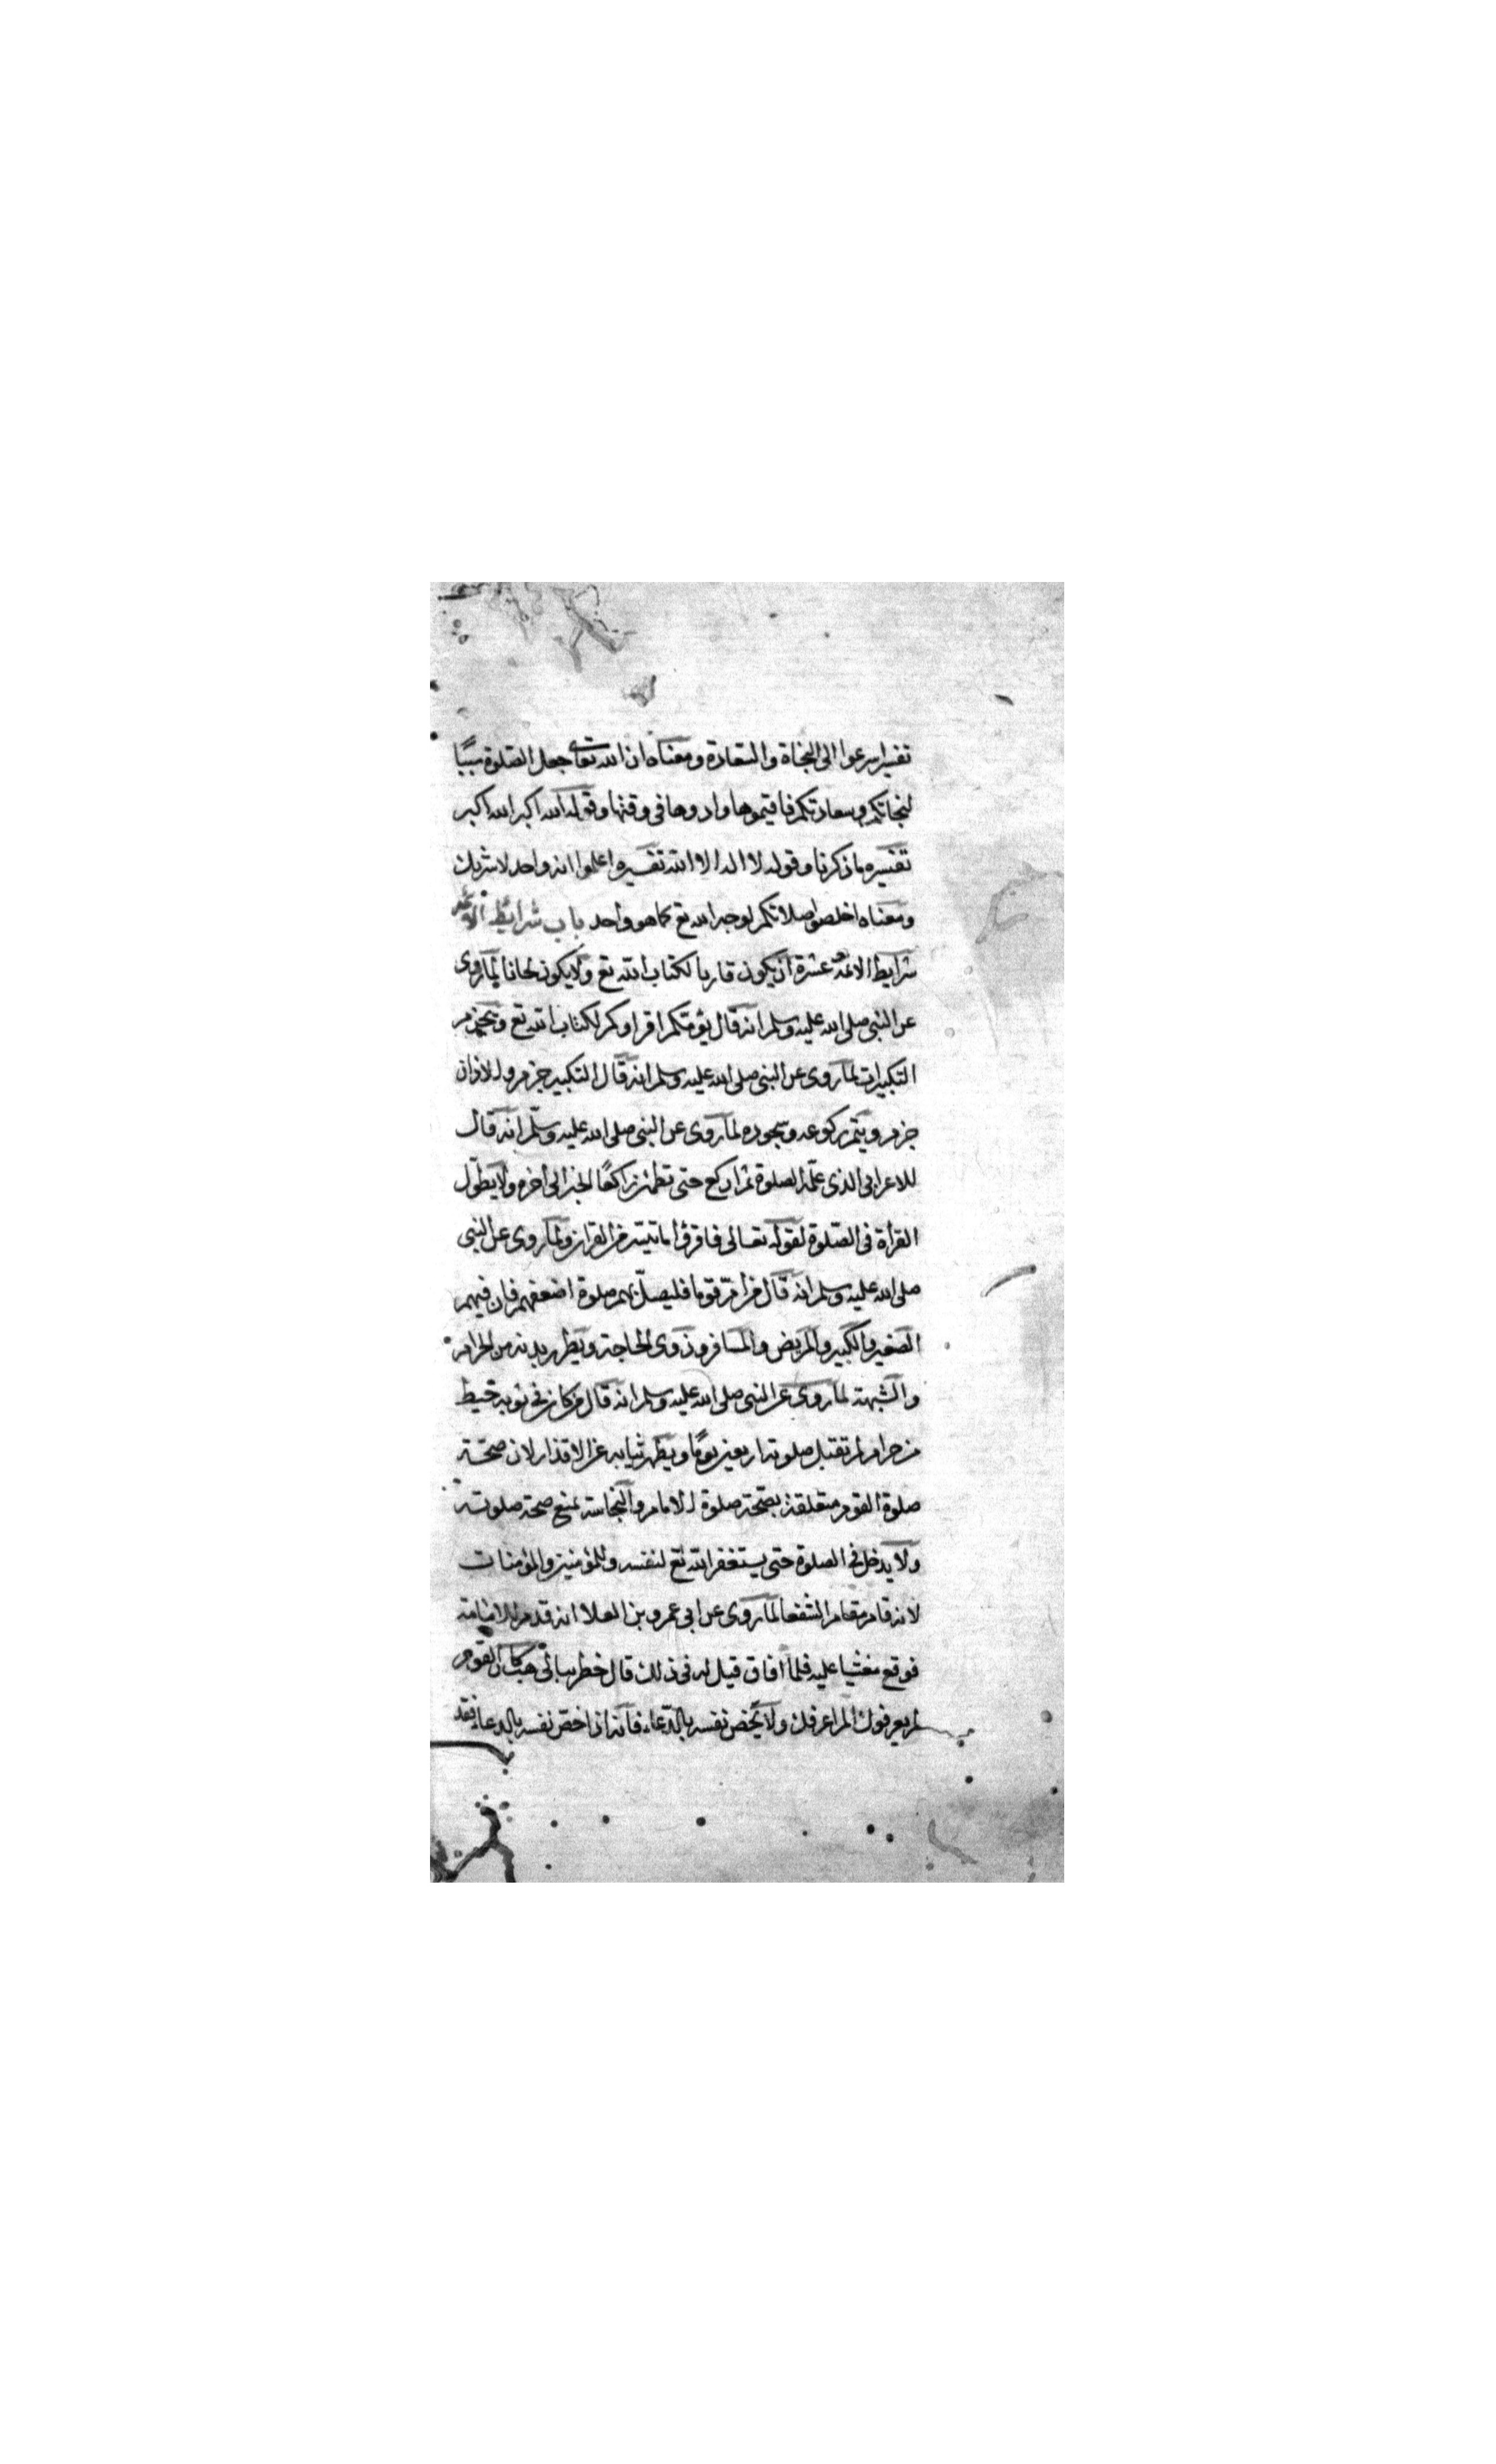 تفسيره اسرعوا الى النجاة والسعادة ومعناه ان الله تعالى جعل الصلوة سببًا
لنجاتكم وسعادتكم فاقيموها وادوها فى وقتها وقوله الله اكبر الله اكبر
تفسيره ما ذكرنا وقوله لا اله الا الله تفسيره اعلموا انه واحد لا شريك
ومعناه اخلصوا صلاتكم لوجه الله تع كما هو واحد باب شرايط الائمة
شرايط الائمة عشرة ان يكون قاريا لكتاب الله تع ولا يكون لحانا لما روى
عن النبى صلى الله عليه وسلم انه قال يؤمكم اقراوكم لكتاب الله تع ويجزم
التكبيرات لما روى عن النبى صلى الله عليه وسلم انه قال التكبير جزم والاذان
جزم ويتم ركوعه وسجوده لما روى عن النبى صلى الله عليه وسلّم انه قال
للاعرابى الذى علّمه الصلوة ثم اركع حتى تطمئن راكعًا الخبر الى اخره ولا يطوّل
القرأة فى الصّلوة لقوله تعالى فاقرؤا ما تيسّر من القران ولما روى عن النبى
صلى الله عليه وسلم انه قال من امّ قوما فليصلّ بهم صلوة اضعفهم فان فيهم
الصغير والكبير والمريض والمسافر وذوى الحاجة ويطهر بدنه من الحرام
والشبهة لما روى عن النبى صلى الله عليه وسلم انه قال من كان فى ثوبه خيط
من حرام لم تقتبل صلوته اربعين يومًا ويطهر ثيابه عن الاقذار لان صحّة
صلوة القوم متعلقة بصحة صلوة الامام والنجاسة تمنع صحة صلوته
ولا يدخل فى الصلوة حتى يستغفر الله تع لنفسه وللمؤمنين والمؤمنات
لانه قام مقام الشفعا لما روى عن ابى عمرو بن العلا انه قدم للامامة
فوقع مغشيا عليه فلما افاق قيل له فى ذلك قال خطر ببالى هب كان القوم
لم يعرفوك الم اعرفك ولا يخص نفسه بالدّعاء فانه اذا خصّ نفسه بالدعاء فقد